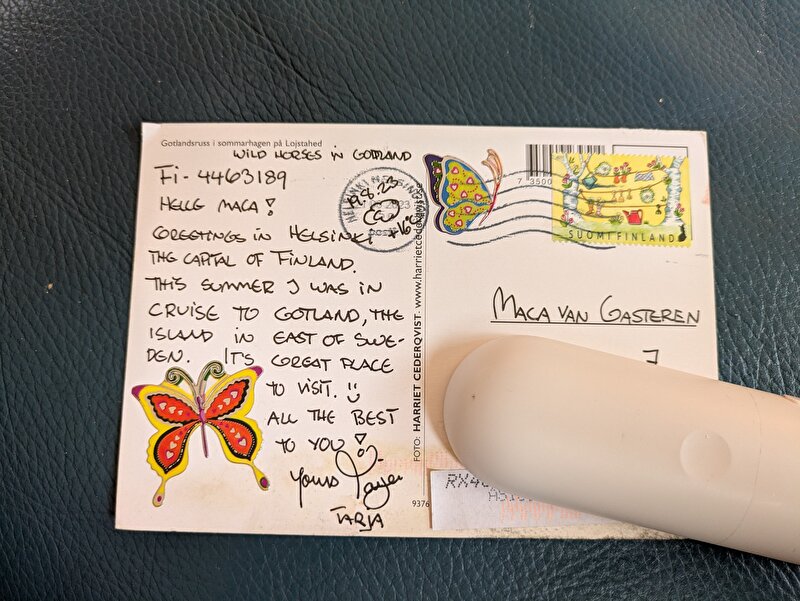 Gotlandsruss i sommarhagen på Lojstahed
WILD HORSES IN GOTLAND
Fi-4463189
HELLO MACA!
GREETINGS IN HELSINKI
THE CAPITAL OF FINLAND.
THIS SUMMER I WAS IN
CRUISE TO GOTLAND, THE
ISLAND IN EAST OF SWE-
DEN. IT'S GREAT PLACE
TO VISIT.
ALL THE BEST
TO YOU!
Yours
TARJA
19.8.23
+16°C
FOTO: HARRIET CEDERQVIST. www.harrietcederqvist
9376
7 3500
SUOMI FINLAND
MACA VAN GASTEREN
RX46